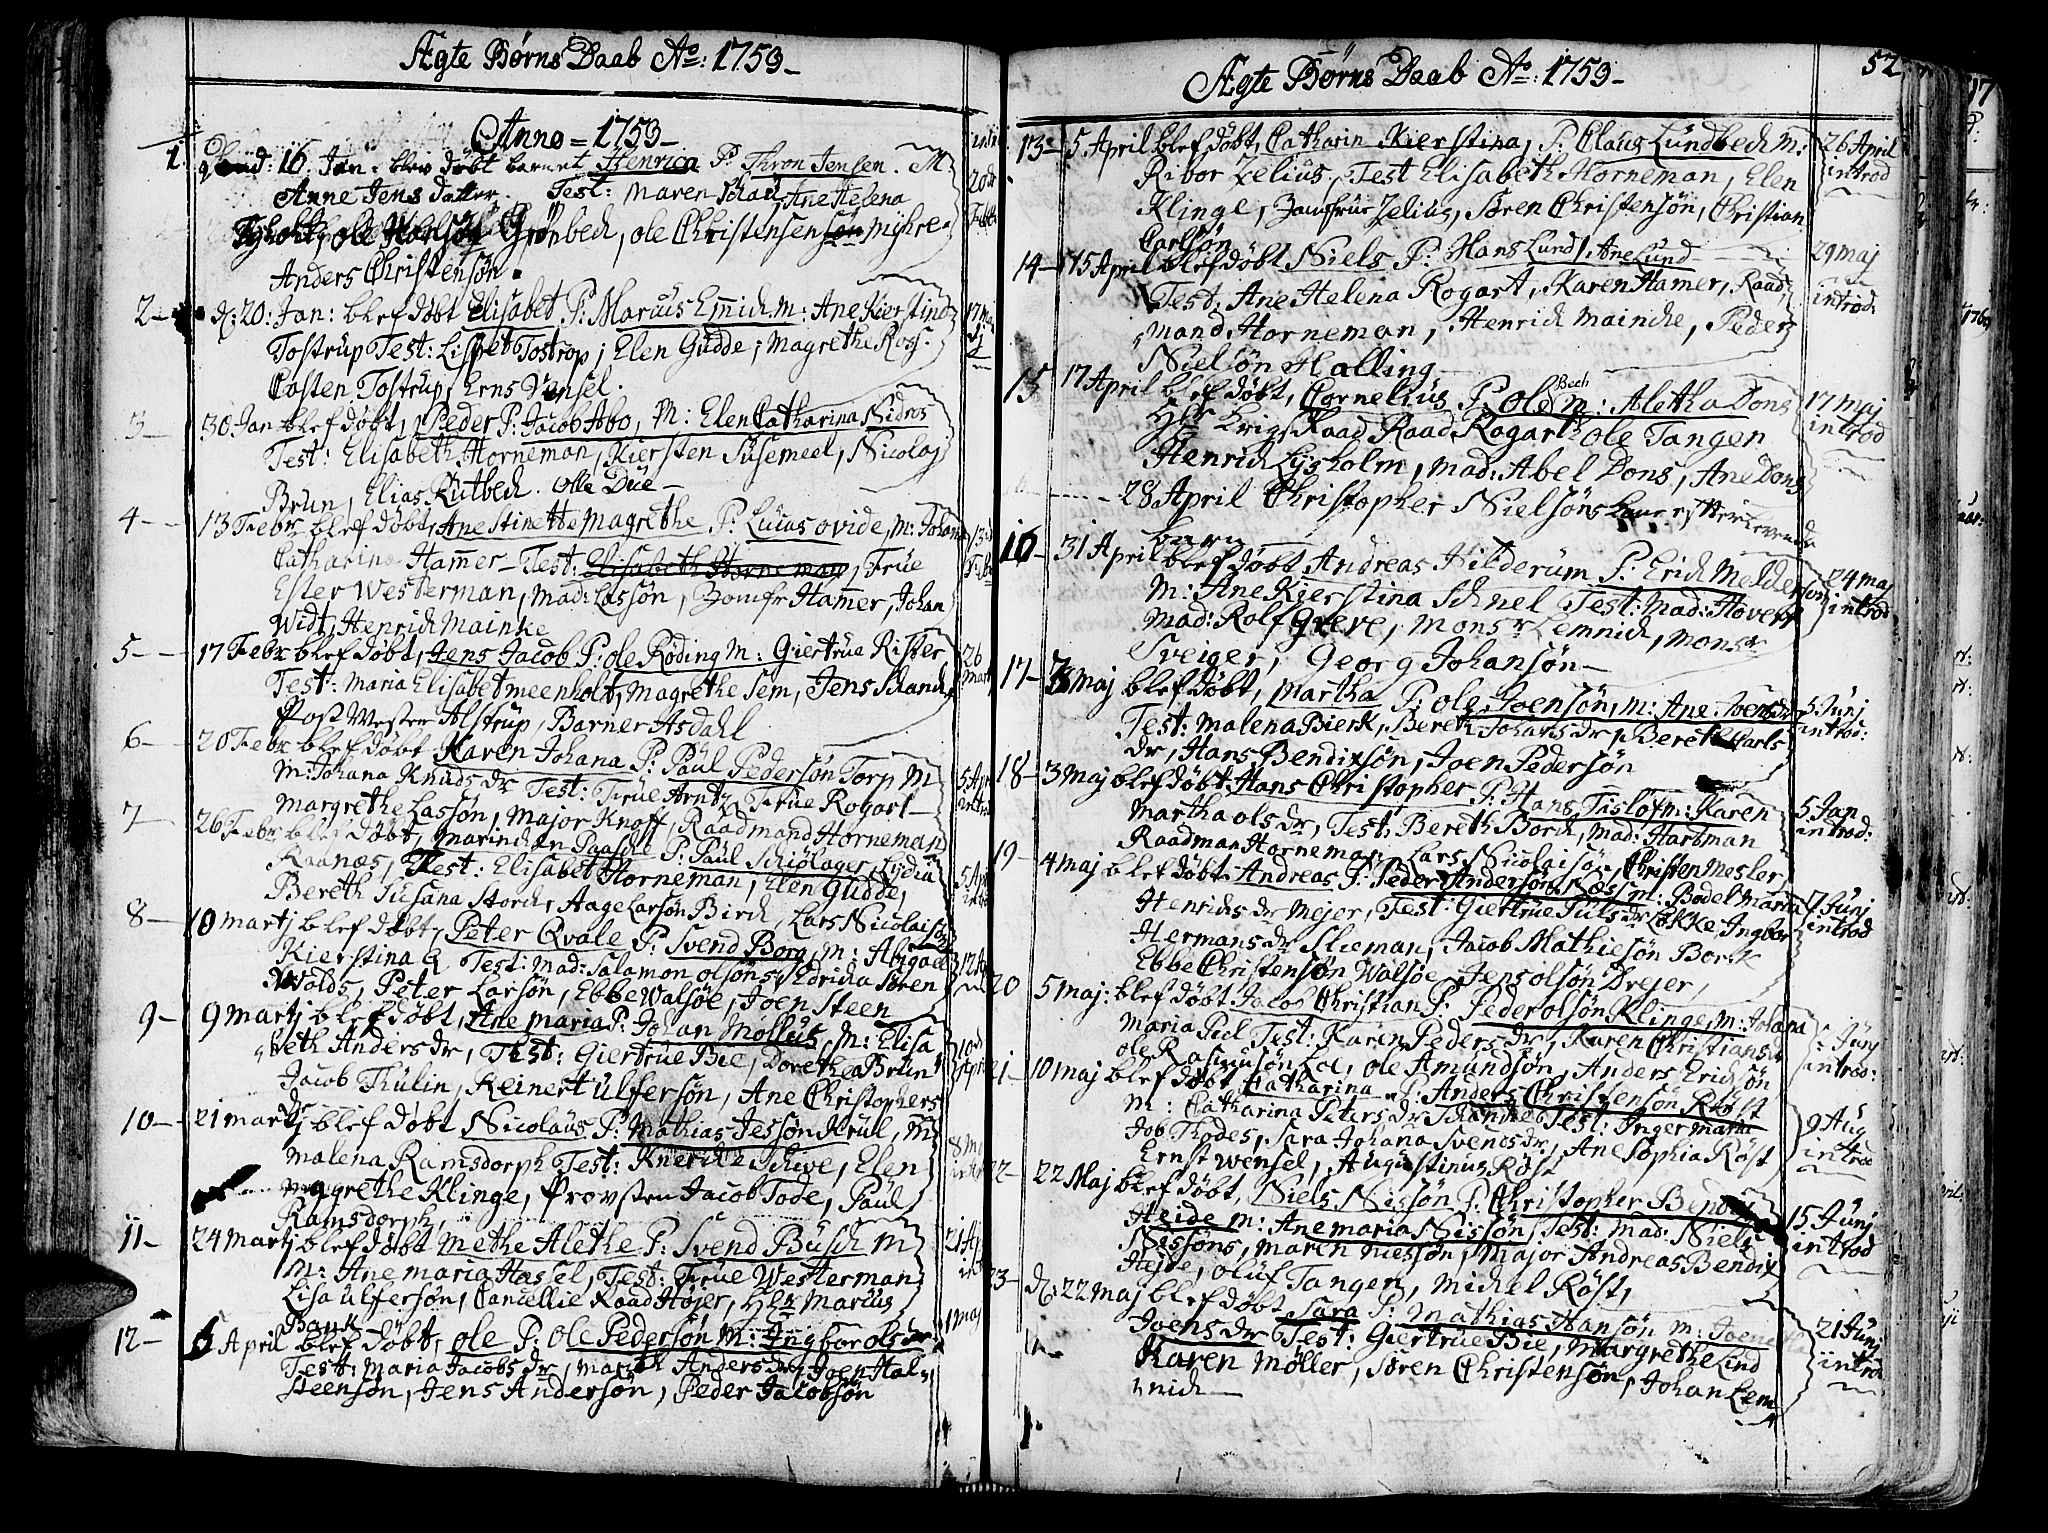 Ægte Børns Daab Ao: 1753-
Anno = 1753-
1. 16. Jan: blev døbt barnet Henrica P: Thron Jensen. M:
Anne Jens datter. Test: Maren Blau, Ane Helena
Tyholt, Ole Grønbech, Ole Christensen Myhre
Anders Christensøn.
2- d: 20: Jan: blef døbt Elisabet P: Marcus Emich M: Ane Kierstina
Tostrup Test: Lisbet Tostrop; Elen Gudde; Magrethe Ross.
Casten Tostrup, Erns Vensel.
3- 30 Jan blef døbt, Peder P: Jacob Abo, M: Elen Catharina Sidros
Test: Elisabeth Horneman, Kiersten Susemeel, Nicolaj
Brun, Elias Rutbech. Olle Due-
4- 13 Febr blef døbt, Ane Stinette Magrethe P: Lucas Ovide, M: Johana
Catharina Hamer- Test: Elisabeth Horneman, Frue
Ester Westerman, Mad: Lassøn, Jomfr Hamer, Johan
Widt, Henrich Mainke
5- 17 Febr blef døbt, Jens Jacob P: Ole Røding M: Giertrue Rister
Test: Maria Elisabet Meenholt, Magrethe Sem, Jens Schanche
Post Wester Alstrup, Barner Asdahl
26 Mart
6- 20 Febr blef døbt Karen Johana P: Paul Pedersøn Torp M
M: Johana Knuds dr Test: Frue Arntz, Frue Rogart-
Margrethe Lassøn, Major Knoff, Raadmand Horneman
7- 26 Febr blef døbt, Marinchen Paasche P: Paul Schiølager, Lydia
Raanæs, Test: Elisabet Horneman, Elen Gudde,
Bereth Susana Storch, Aage Larsøn Birch, Lars Nicolaisøn
8- 10 Martj blef døbt, Peter Qvale P: Svend Borg, M: Abigael
Kierstina Q Test: Mad: Salamon Olsøns, Edricka Søren
Wolds, Peter Larsøn, Ebbe Walsøe, Joen Steen
9- 9 Martj blef døbt, Ane Maria P: Johan Mollus, M: Elisa
beth Anders dr, Test: Giertrue Bie, Dorethea Brun
Jacob Thulin, Reinert Ulfersøn, Ane Christophers
dr
10- 21 Martj blef døbt Nicolaus P: Mathias Jessøn Krul, M:
Malena Ramsdorph Test: Schive, Elen
Magrethe Klinge, Provsten Jacob Tode, Paul
Ramsdorph,
11- 24 Martj blef døbt Methe Alethe P: Svend Busch M
M: Ane Maria Hassel, Test: Frue Westerman
Lisa Ulfersøn, Cancellie Raad Højer, Hr Marcus
Bank
12- 6 April blef døbt, Ole P: Ole Pedersøn M: Ingbor Ols dr
Test: Maria Jacobs dr, Marith Anders dr, Joen Hal-
steensøn, Jens Andersøn, Peder Jacobsøn
Ægte Børns Daab Ao: 1753-
52
13- 5 April blef døbt, Catharin Kierstina, P: Claus Lundbech M:
Ribor Zelius, Test Elisabeth Horneman, Elen
Klinge, Jomfrue Zelius, Søren Christensøn, Christian
Carlsøn
26 April
introd
14- 15 April blef døbt Niels P: Hans Lund, Ane Lund
Test: Ane Helena Rogart, Karen Hamer, Raad
mand Horneman, Henrich Mainche, Peder
Nielsøn Halling
29 Maj
introd
15 17 April blef døbt, Cornelius P: Ole Bech M: Aletha Dons
Hr Krigs Raad Raad Rogart, Ole Tangen
Henrich Lysholm, Mad: Abel Dons, Ane Dons
17 Maj
introd
28 April Christopher Nielsøns
barn
16- 31 April blef døbt Andreas Hilderum P: Erich Meldersøn
M: Ane Kierstina Schnel Test: Mad: Hovert
Mad: Rolf Greve, Monsr Lemnich, Monsr
Sveiger, Georg Johansøn-
24 Maj
introd
17- 3 Maj blef døbt, Martha P: Ole Joensøn, M: Ane Joens dr
Test: Malena Bierk, Bereth Johans dr, Bereth Carls
dr, Hans Bendixsøn, Joen Pedersøn
5 Junj
introd:
18- 3 Maj blef døbt Hans Christopher P: Hans Tisløf M: Karen
Martha Ols dr, Test: Bereth Borch, Mad: Hartman
Raadman Horneman, Lars Nicolaisøn, Christen Mesler
5 Jan
introd:
19- 4 Maj blef døbt Andreas P: Peder Andersøn Næs M: Bodel Maria
Henrichs dr Mejer, Test: Giertrue Puls dr Løkke Ingbor
Hermans dr Slieman, Jacob Mathiesøn Borck
Ebbe Christensøn Walsøe, Jens Olsøn Drejer,
7 Junj
introd
20 5 Maj: blef døbt Jacob Christian P: Peder Olsøn Klinge, M: Johana
Maria Piil Test: Karen Peders dr, Karen Christians dr
Ole Rasmusøn Loe, Ole Amundsøn, Anders Erichsøn
Junj
introd:
21- 10 Maj blef døbt Catharina P: Anders Christensøn Røst
M: Catharina Peters dr Schanche Test: Inger Maria
Job Thodes, Sara Johana Svends dr, Ane Sophia Røst
Ernst Wensel, Augustinus Røst
9 Aug
introd
22- 22 Maj blef døbt, Niels Nissøn P: Christopher Bendix
Heide M: Ane Maria Nissøn, Test: Mad: Niels
Nissøns, Maren Nissøn, Major Andreas Bendix
Hejde, Oluf Tangen, Michel Røst,
15 Junj
introd
23- d: 22 Maj blef døbt Sara P: Mathias Hansøn M: Joena
Joens dr Test: Giertrue Bie, Margrethe Lind
Karen Møller, Søren Christensøn, Johan Lem
nich-
21 Junj
introd